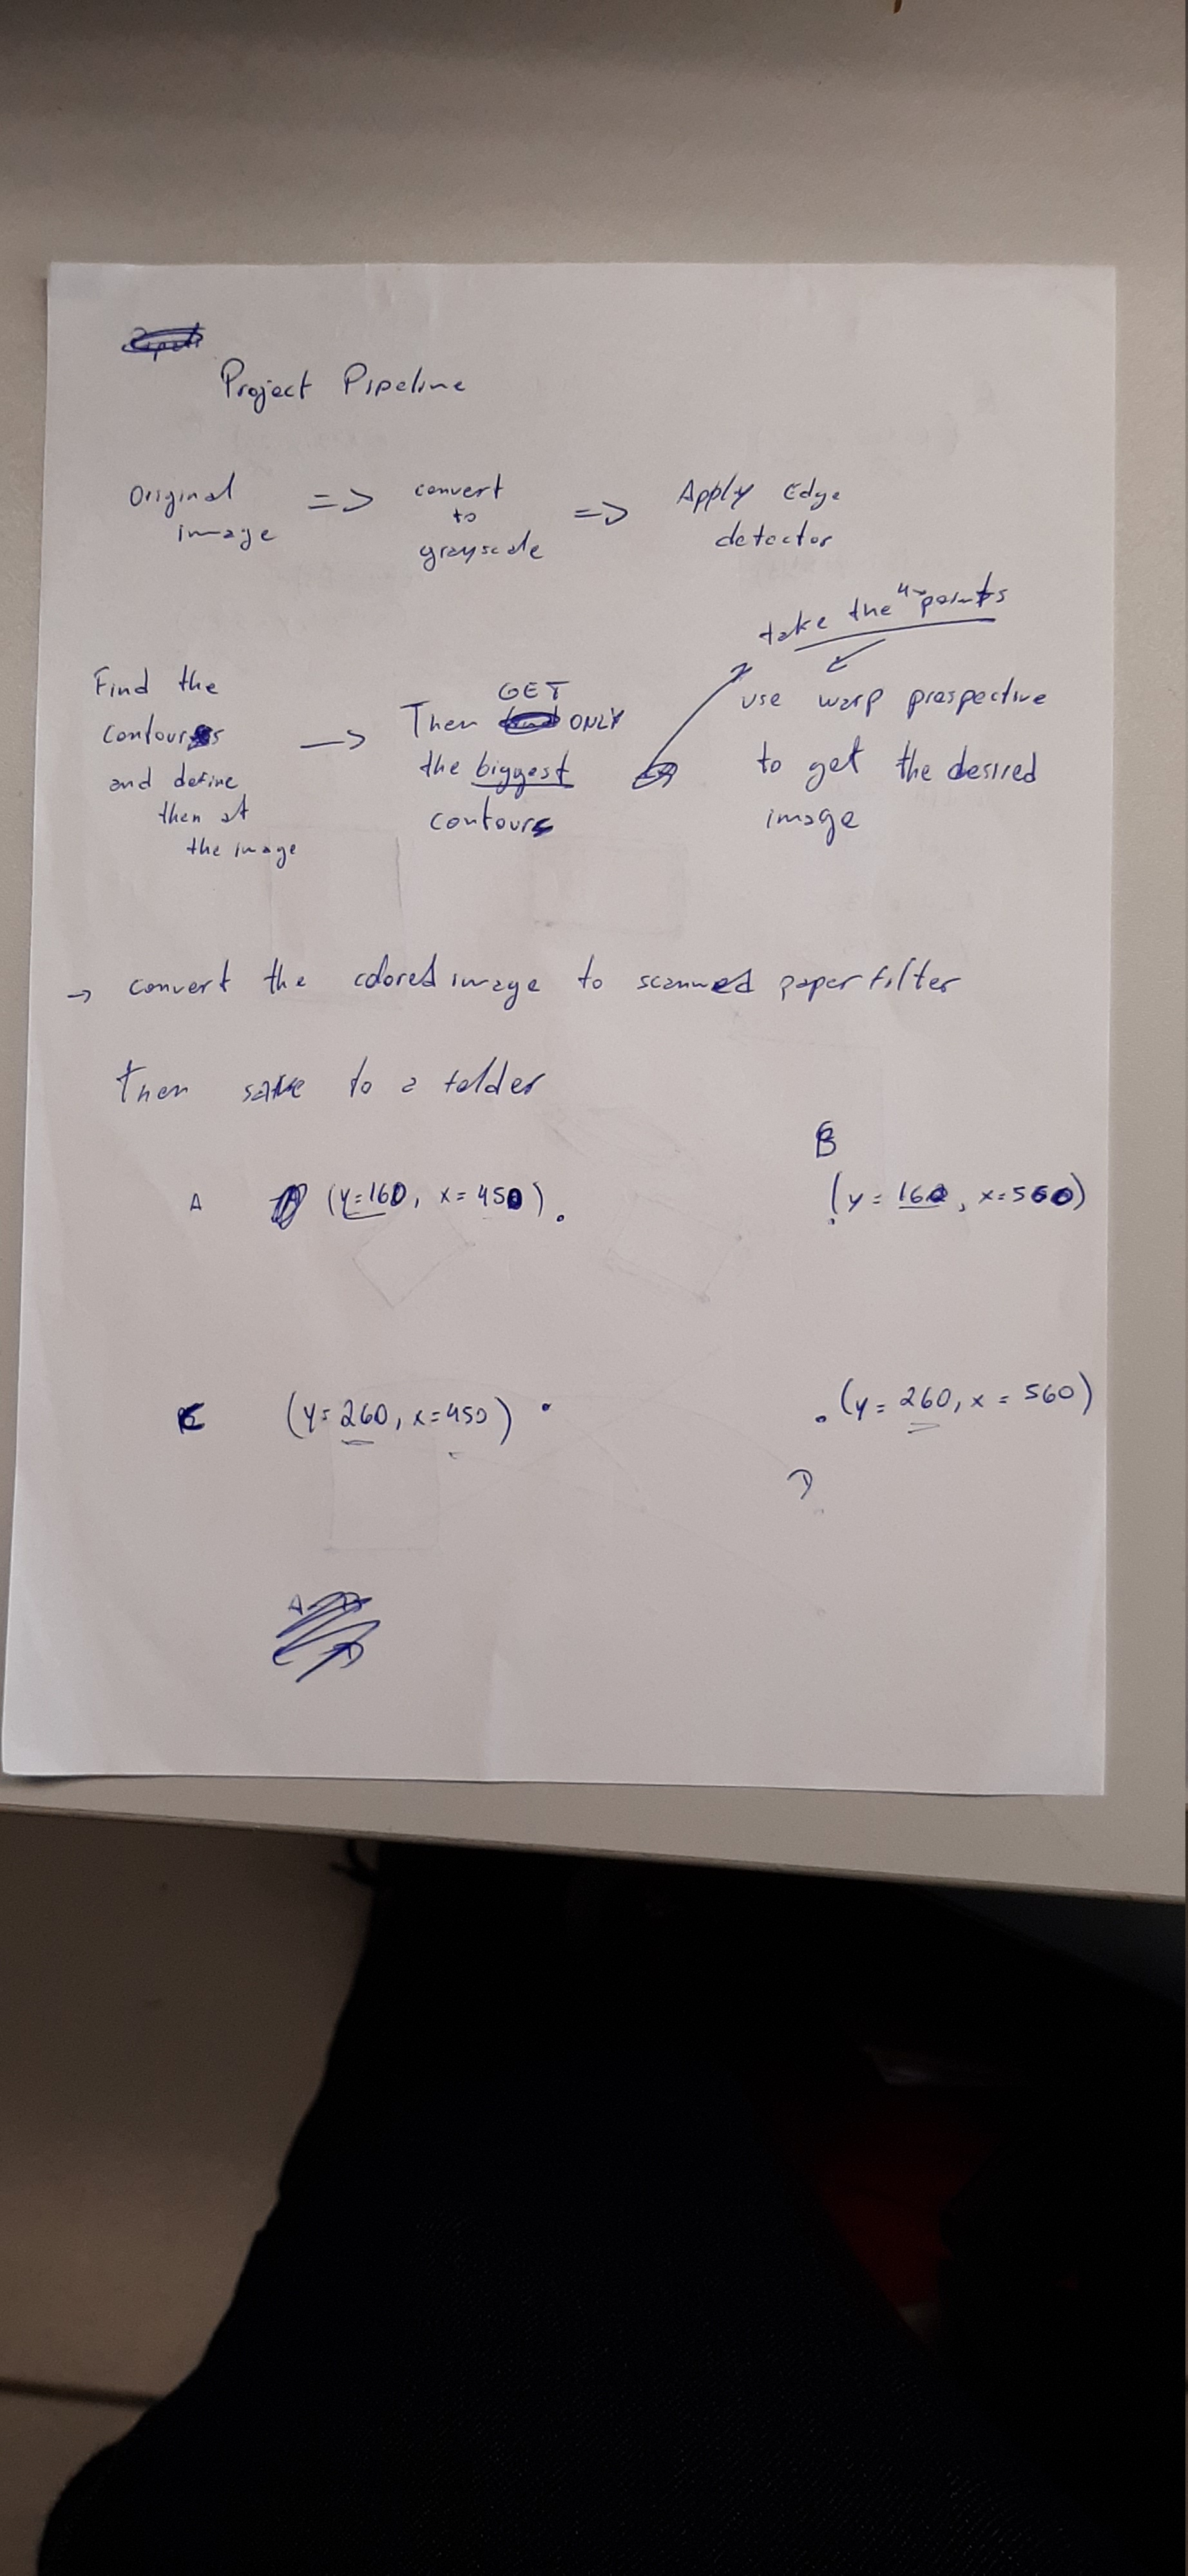 Project Pipeline
Original image => convert to grayscale => Apply Edge detector
take the 4 points
Find the contours and define then at the image -> Then GET ONLY the biggest contours
use warp prospective to get the desired image
-> convert the colored image to scanned paper filter
Then save to a folder
B
A (y=160, x=450) (y=160, x=560)
C (y=260, x=450) (y=260, x=560)
D